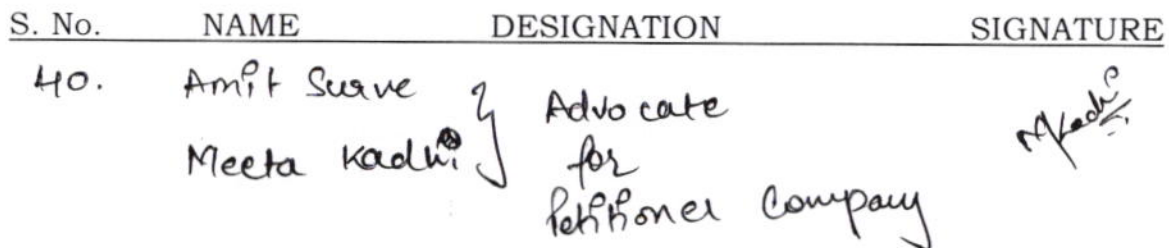 S. No. NAME DESIGNATION SIGNATURE
40. Amit Surve } Advocate
Meeta Kadhi for
Petitioner Company
MKadhi